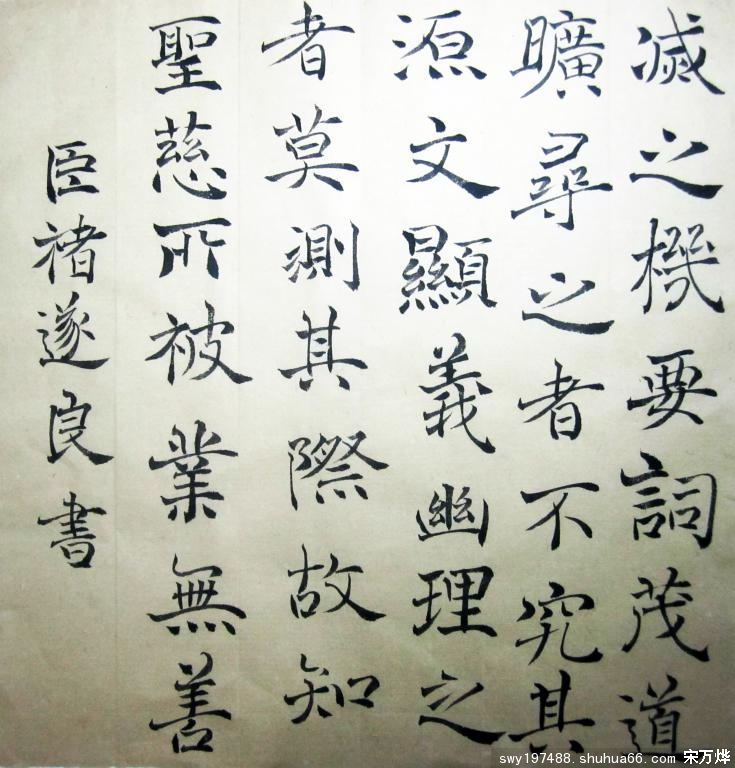 滅之機要詞茂道
曠尋之者不究其
源文顯義幽理之
者莫測其際故知
聖慈所被業無善
臣褚遂良書
swy197488.shuhua66.com 宋万烨